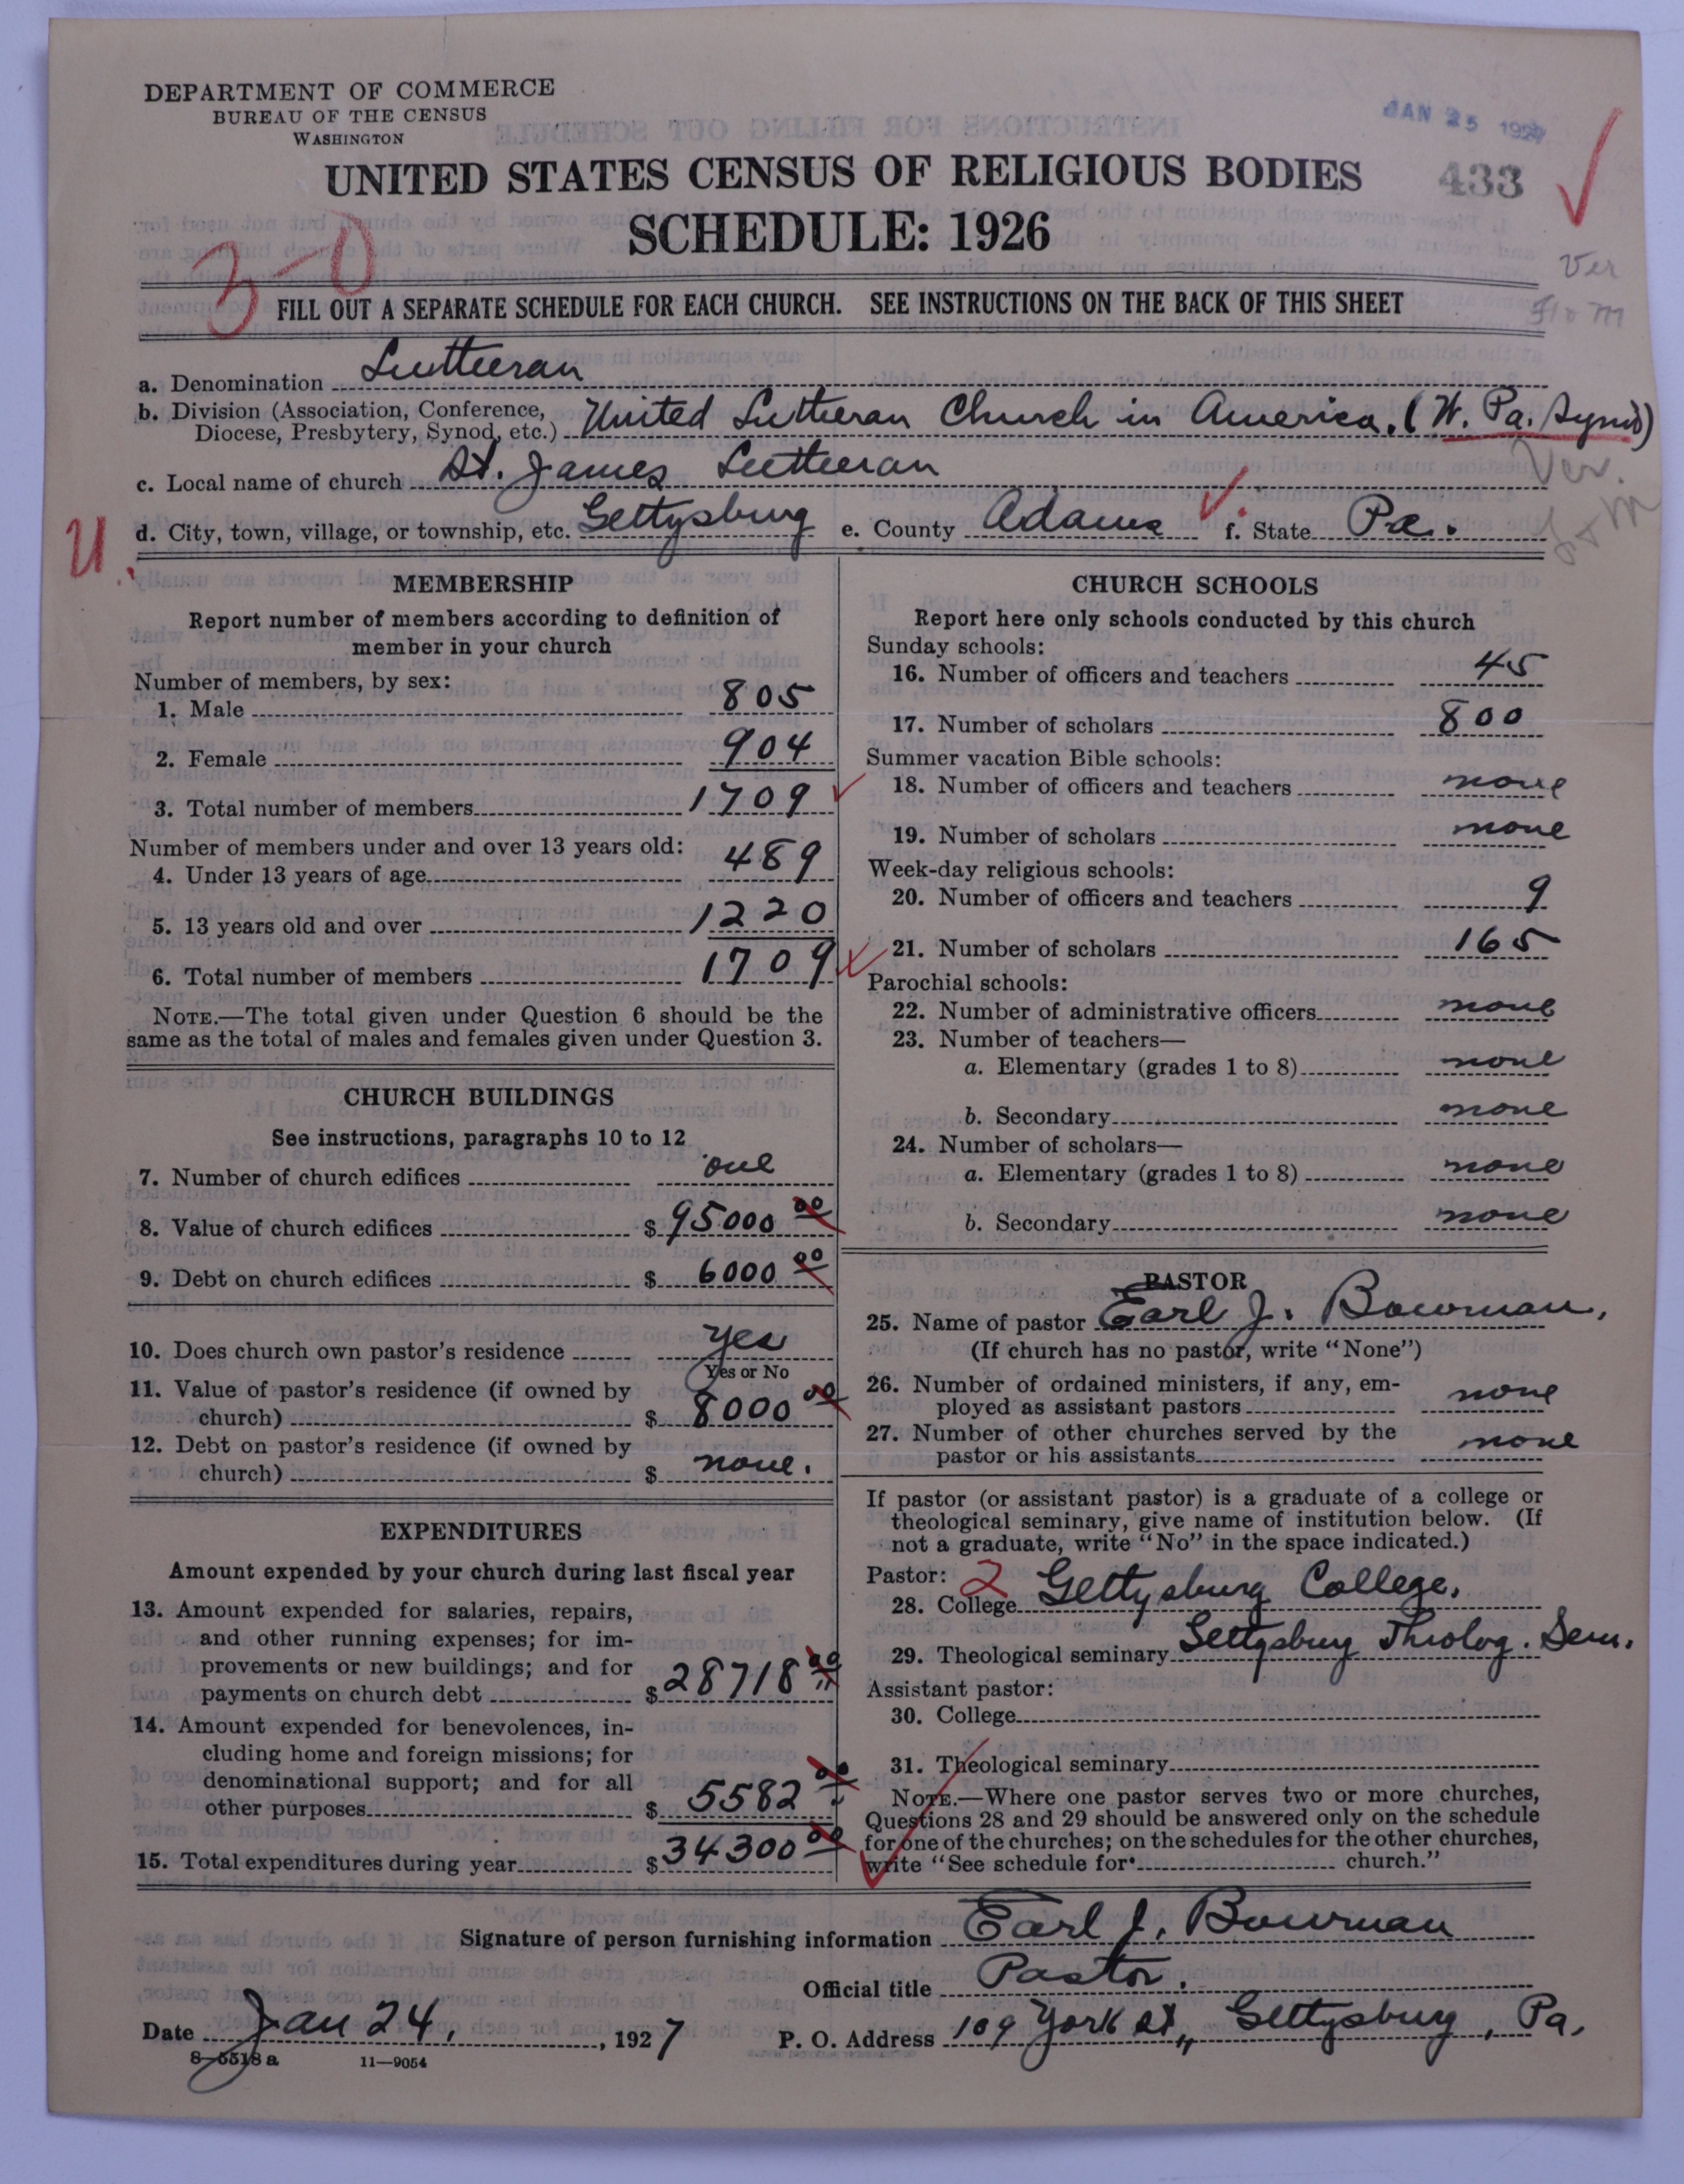 DEPARTMENT OF COMMERCE
BUREAU OF THE CENSUS
WASHINGTON
JAN 25 1927
UNITED STATES CENSUS OF RELIGIOUS BODIES
433
SCHEDULE: 1926
3-0
Ver
FILL OUT A SEPARATE SCHEDULE FOR EACH CHURCH. SEE INSTRUCTIONS ON THE BACK OF THIS SHEET
a. Denomination Lutheran
b. Division (Association, Conference, Diocese, Presbytery, Synod, etc.) United Lutheran Church in America. (W. Pa. Synod)
c. Local name of church St. James Lutheran
Ver.
U.
d. City, town, village, or township, etc. Gettysburg e. County Adams f. State Pa.
MEMBERSHIP
Report number of members according to definition of
member in your church
Number of members, by sex:
1. Male 805
2. Female 904
3. Total number of members 1709
Number of members under and over 13 years old:
4. Under 13 years of age 489
5. 13 years old and over 1220
6. Total number of members 1709
NOTE.—The total given under Question 6 should be the
same as the total of males and females given under Question 3.
CHURCH BUILDINGS
See instructions, paragraphs 10 to 12
7. Number of church edifices one
8. Value of church edifices $ 95000 00
9. Debt on church edifices $ 6000 00
10. Does church own pastor's residence Yes
Yes or No
11. Value of pastor's residence (if owned by
church) $ 8000 00
12. Debt on pastor's residence (if owned by
church) $ none.
EXPENDITURES
Amount expended by your church during last fiscal year
13. Amount expended for salaries, repairs,
and other running expenses; for im-
provements or new buildings; and for
payments on church debt $ 28718 00
14. Amount expended for benevolences, in-
cluding home and foreign missions; for
denominational support; and for all
other purposes $ 5582 00
15. Total expenditures during year $ 34300 00
CHURCH SCHOOLS
Report here only schools conducted by this church
Sunday schools:
16. Number of officers and teachers 45
17. Number of scholars 800
Summer vacation Bible schools:
18. Number of officers and teachers none
19. Number of scholars none
Week-day religious schools:
20. Number of officers and teachers 9
21. Number of scholars 165
Parochial schools:
22. Number of administrative officers none
23. Number of teachers—
a. Elementary (grades 1 to 8) none
b. Secondary none
24. Number of scholars—
a. Elementary (grades 1 to 8) none
b. Secondary none
PASTOR
25. Name of pastor Earl J. Bowman,
(If church has no pastor, write "None")
26. Number of ordained ministers, if any, em-
ployed as assistant pastors none
27. Number of other churches served by the
pastor or his assistants none
If pastor (or assistant pastor) is a graduate of a college or
theological seminary, give name of institution below. (If
not a graduate, write "No" in the space indicated.)
Pastor: 2
28. College Gettysburg College.
29. Theological seminary Gettysburg Theolog. Sem.
Assistant pastor:
30. College
31. Theological seminary
NOTE.—Where one pastor serves two or more churches,
Questions 28 and 29 should be answered only on the schedule
for one of the churches; on the schedules for the other churches,
write "See schedule for church."
Signature of person furnishing information Earl J. Bowman
Official title Pastor.
Date Jan 24, 1927 P. O. Address 109 York St., Gettysburg, Pa.
8-5518 a 11-9054